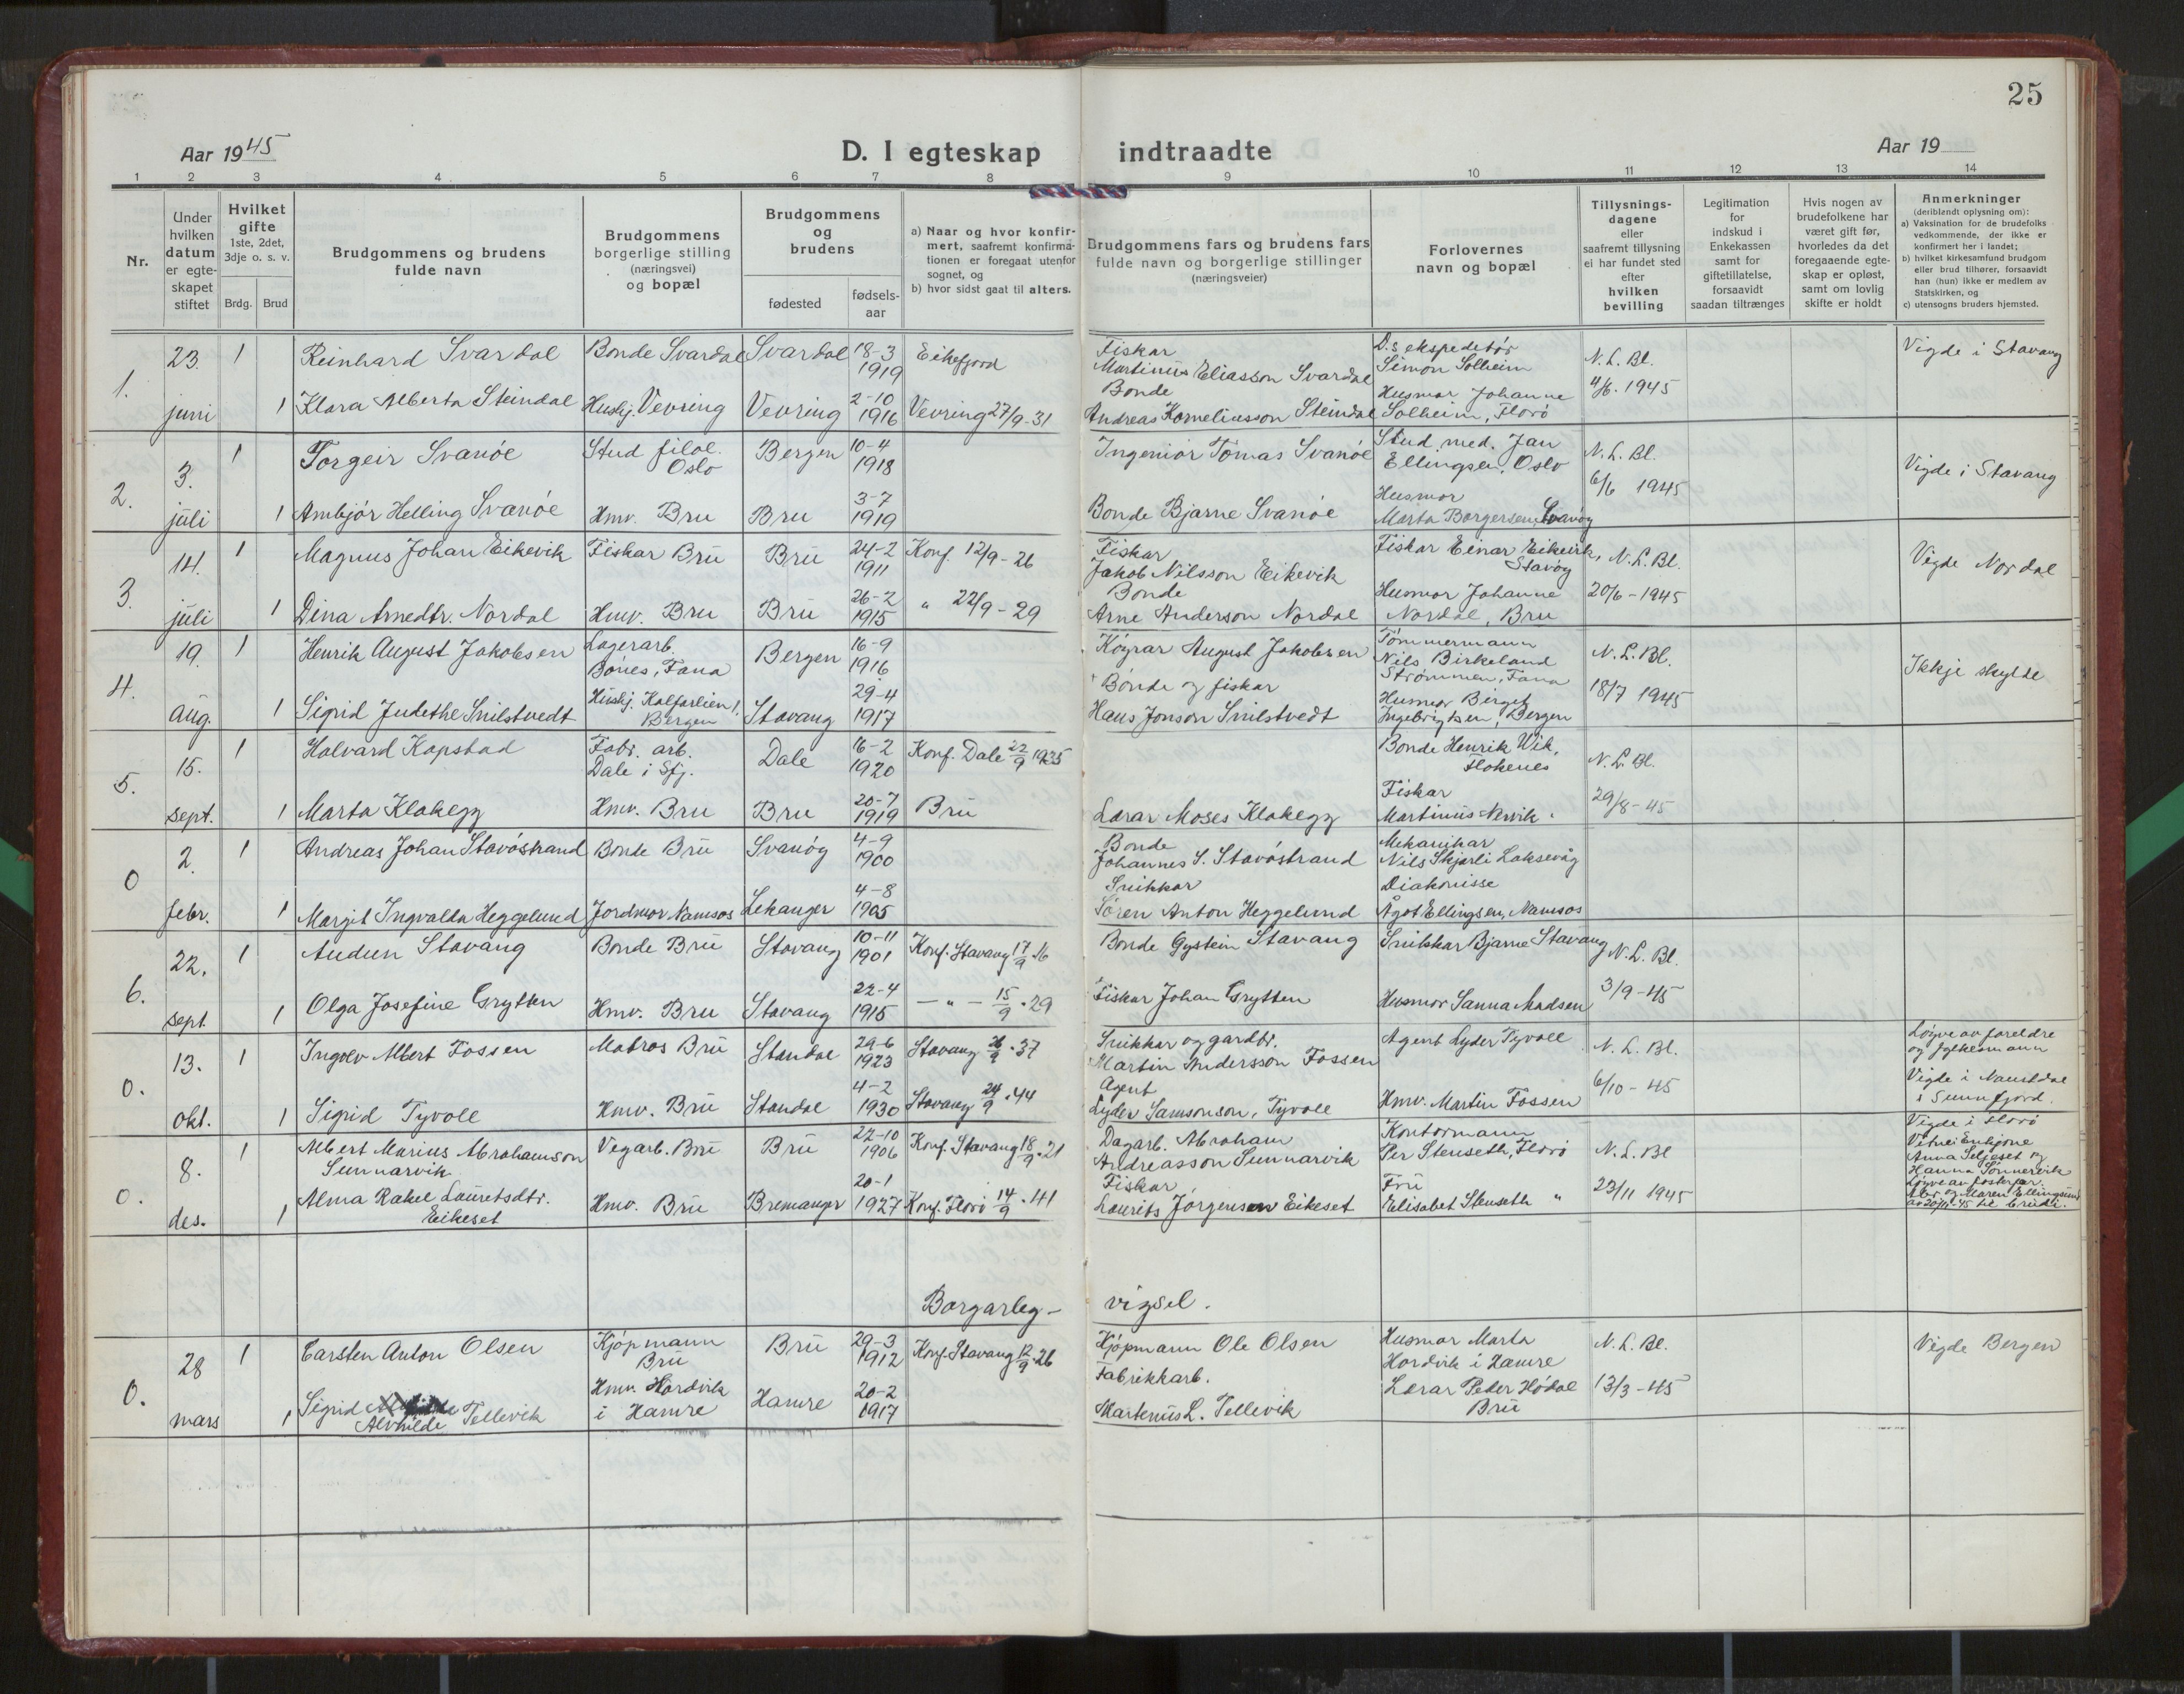 25
Aar 1945
D. I egteskap indtraadte
Aar 19
1 2 3 4 5 6 7 8 9 10 11 12 13 14
Nr.
Under
hvilken
datum
er egte-
skapet
stiftet
Hvilket
gifte
1ste, 2det,
3dje o. s. v.
Brdg. Brud
Brudgommens og brudens
fulde navn
Brudgommens
borgerlige stilling
(næringsvei)
og bopæl
Brudgommens
og
brudens
fødested
fødsels-
aar
a) Naar og hvor konfir-
mert, saafremt konfirma-
tionen er foregaat utenfor
sognet, og
b) hvor sidst gaat til alters.
Brudgommens fars og brudens fars
fulde navn og borgerlige stillinger
(næringsveier)
Forlovernes
navn og bopæl
Tillysnings-
dagene
eller
saafremt tillysning
ei har fundet sted
efter
hvilken
bevilling
Legitimation
for
indskud i
Enkekassen
samt for
giftetillatelse,
forsaavidt
saadan tiltrænges
Hvis nogen av
brudefolkene har
været gift før,
hvorledes da det
foregaaende egte-
skap er opløst,
samt om lovlig
skifte er holdt
Anmerkninger
(deriblandt oplysning om):
a) Vaksination for de brudefolks
vedkommende, der ikke er
konfirmert her i landet;
b) hvilket kirkesamfund brudgom
eller brud tilhører, forsaavidt
han (hun) ikke er medlem av
Statskirken, og
c) utensogns bruders hjemsted.
1.
23.
juni
1
Reinhard Svardal
Bonde Svardal
Svardal
18-3
1919
Eikefjord
Fiskar
Martinus Eliasson Svardal
D.s ekspeditør
Simon Solheim
N. L. Bl.
4/6. 1945
Vigde i Stavang
1
Klara Alberta Steindal
Hushj. Vevring
Vevring
2-10
1916
Vevring 27/9-31
Bonde
Andreas Korneliusson Steindal
Husmor Johanne
Solheim, Florö
2.
3.
juli
1
Torgeir Svanöe
Stud filol.
Oslo
Bergen
10-4
1918
Ingeniör Tomas Svanöe
Stud. med. Jan
Ellingsen, Oslo
N. L. Bl.
6/6 1945
Vigde i Stavang
1
Ambjör Helling Svanöe
Hmv. Bru
Bru
3-7
1919
Bonde Bjarne Svanöe
Husmor
Marta Borgersen, Svanöy
3.
14.
juli
1
Magnus Johan Eikevik
Fiskar Bru
Bru
24-2
1911
Konf. 12/9-26
Fiskar
Jakob Nilsson Eikevik
Fiskar Einar Eikevik,
Stavöy
N. L. Bl.
20/6-1945
Vigde Nordal
1
Dina Arnedtr. Nordal
Hmv. Bru
Bru
26-2
1915
" 22/9-29
Bonde
Arne Anderson Nordal
Husmor Johanne
Nordal, Bru
4.
19.
aug.
1
Henrik August Jakobsen
Lagerarb.
Bönes, Fana
Bergen
16-9
1916
Köyrar August Jakobsen
Tömmermann
Nils Birkeland
Strömmen, Fana
N. L. Bl.
18/7 1945
Ikkje skylde
1
Sigrid Judithe Smilstvedt
Hushj. Kalfarlien 1.
Bergen
Stavang
29-4
1917
Bonde og fiskar
Hans Jonson Smilstvedt
Husmor Birgit
Ingebrigtsen, Bergen
5.
15.
sept.
1
Halvard Kapstad
Fabr. arb.
Dale i Sfj.
Dale
16-2
1920
Konf. Dale 22/9 1935
Bonde Henrik Vik,
Flokenes
N. L. Bl.
29/8-45
1
Marta Klakegg
Hmv. Bru
Bru
20-7
1919
Bru
Lærar Moses Klakegg
Fiskar
Martinus Nervik
0
2.
febr.
1
Andreas Johan Stavöstrand
Bonde Bru
Svanöy
4-9
1900
Bonde
Johannes S. Stavöstrand
Mekanikar
Nils Skjærli Laksevåg
1
Margit Ingvalda Heggelund
Jordmor Namsos
Lekanger
4-8
1905
Snikkar
Sören Anton Heggelund
Diakonisse
Ågot Ellingsen, Namsos
6.
22.
sept.
1
Audun Stavang
Bonde Bru
Stavang
10-11
1901
Konf. Stavang 17/9-16
Bonde Öystein Stavang
Snikkar Bjarne Stavang
N. L. Bl.
3/9-45
1
Olga Josefine Grytten
Hmv. Bru
Stavang
22-4
1915
— " — 15/9-29
Fiskar Johan Grytten
Husmor Sanna Madsen
0.
13.
okt.
1
Ingolv Albert Fossen
Matros Bru
Standal
29-6
1923
Stavang 26/9-37
Snikkar og gardbr.
Martin Andersson Fossen
Agent Lyder Tyvoll
N. L. Bl.
6/10-45
Löyve av foreldre
og fylkesmann
Vigde i Naustdal
i Sunnfjord.
1
Sigrid Tyvoll
Hmv. Bru
Standal
4-2
1930
Stavang 24/9-44
Agent
Lyder Samsonson, Tyvoll
Hmv. Martin Fossen
0.
8.
des.
1
Albert Marius Abrahamson
Sunnarvik
Vegarb. Bru
Bru
22-10
1906
Konf. Stavang 18/9-21
Dagarb. Abraham
Andreasson Sunnarvik
Kontormann
Per Stenseth, Florö
N. L. Bl
23/11 1945
Vigde i Florö
Vitnei Enkjone
Anna Seljeset og
Hanna Sönnervik
Löyve av fosterfor.
Abr. og Maren Ellingsund
av 20/11-45 til brudi.
1
Alma Rakel Lauritsdtr.
Eikeset
Hmv. Bru
Bremanger
20-1
1927
Konf. Florö 14/9-41
Fiskar
Laurits Jörgenson Eikeset
Fru
Elisabet Stenseth "
Borgarleg - vigsel.
0.
28
mars
1
Carsten Anton Olsen
Kjöpmann
Bru
Bru
29-3
1912
Konf. Stavang 12/9-26
Kjöpmann Ole Olsen
Husmor Marta
Hordvik i Hamre
N. L. Bl.
13/3-45
Vigde Bergen
1
Sigrid
Alvhilde Tellevik
Hmv. Hordvik
i Hamre
Hamre
20-2
1917
Fabrikkarb.
Martenius L. Tellevik
Lærar Peter Hödal
Bru